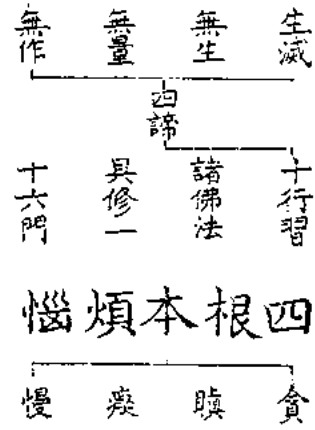 生滅
無生
無量
無作
四諦
十行習
諸佛法
具修一
十六門
四根本煩惱
貪
瞋
癡
慢